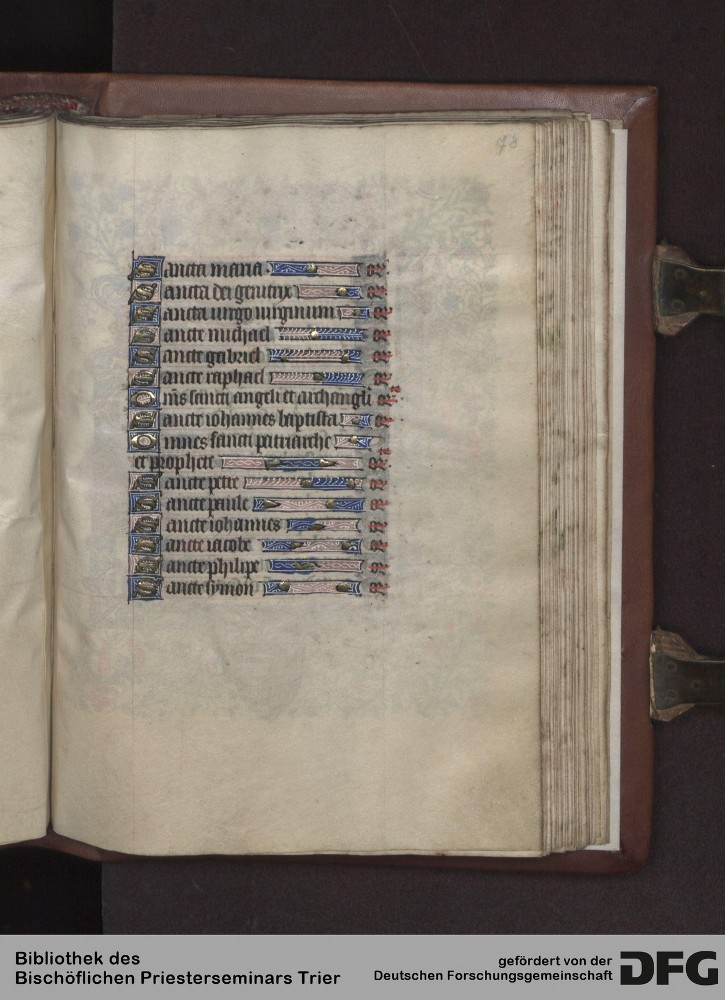 78
Sancta maria or
Sancta dei genitrix or
Sancta virgo virginum or
Sancte michael or
Sancte gabriel or
Sancte raphael or
Om̅s sancti angeli et archangeli or
Sancte iohannes baptista or
Omnes sancti patriarche
et prophete or
Sancte petre or
Sancte paule or
Sancte iohannes or
Sancte iacobe or
Sancte philipe or
Sancte symon or
Bibliothek des
Bischöflichen Priesterseminars Trier
gefördert von der
Deutschen Forschungsgemeinschaft
DFG